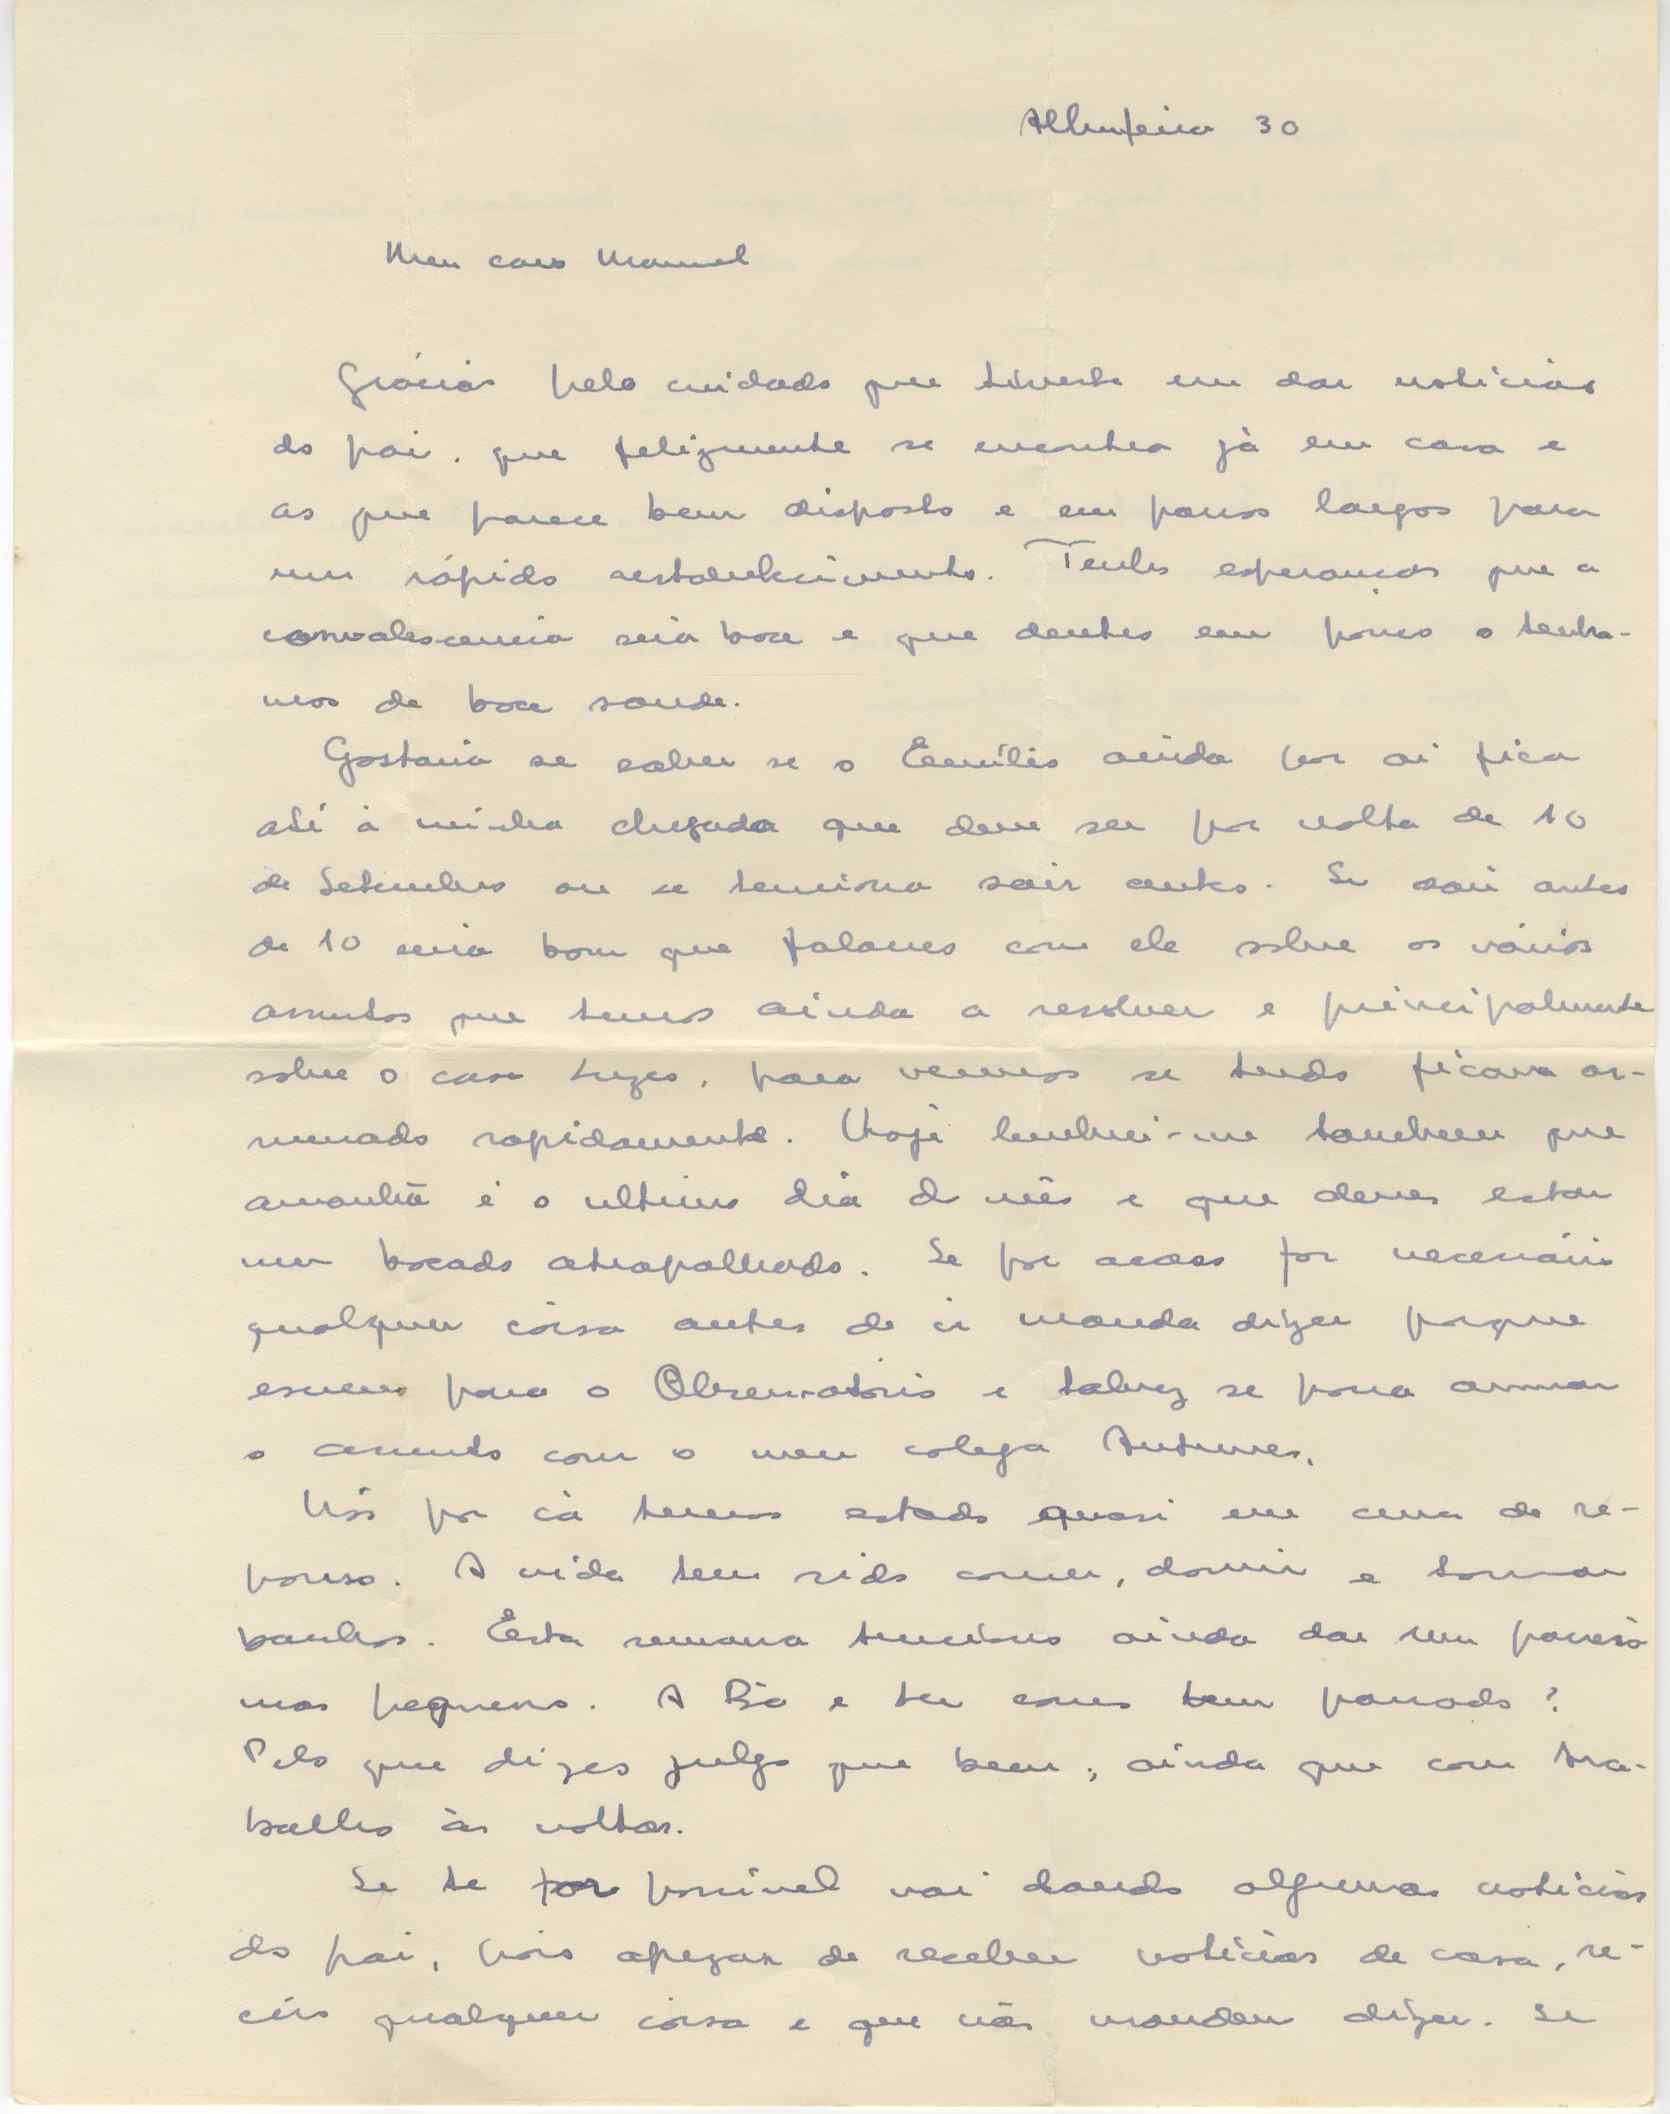 Albufeira 30
Meu caro Manuel
Grácias pelo cuidado que tiveste em dar noticias
do pai, que felizmente se encontra já em casa e
ao que parece bem disposto e em passos largos para
um rápido restabelecimento. Tenho esperanças que a
convalescencia seia boa e que dentro em pouco o tenha-
mos de boa saude.
Gostaria de saber se o Emílio ainda por ai fica
até à minha chegada que deve ser por volta de 10
de Setembro ou se tenciona sair antes. Se sai antes
de 10 seria bom que falasses com ele sobre os vários
assuntos que temos ainda a resolver e principalmente
sobre o caso, para vermos se tudo ficava ar-
rumado rapidamente. Hoje lembrei-me tambem que
amanhã é o ultimo dia do mês e que deves estar
um bocado atrapalhado. Se por acaso for necessário
qualquer coisa antes de ir manda dizer porque
escrevo para o Observatório e talvez se possa arrumar
o assunto com o meu colega Antunes.
Nós por cá temos estado quasi em cura de re-
pouso. A vida tem sido comer, dormir e tomar
banhos. Esta semana tenciono ainda dar um passeio
mas pequeno. A e tu como tem passado?
Pelo que dizes julgo que bem; ainda que com tra-
balho às voltas.
Se te for possivel vai dando algumas noticias
do pai, pois apezar de receber noticias de casa, re-
ceio qualquer coisa e que não mandem dizer. Se